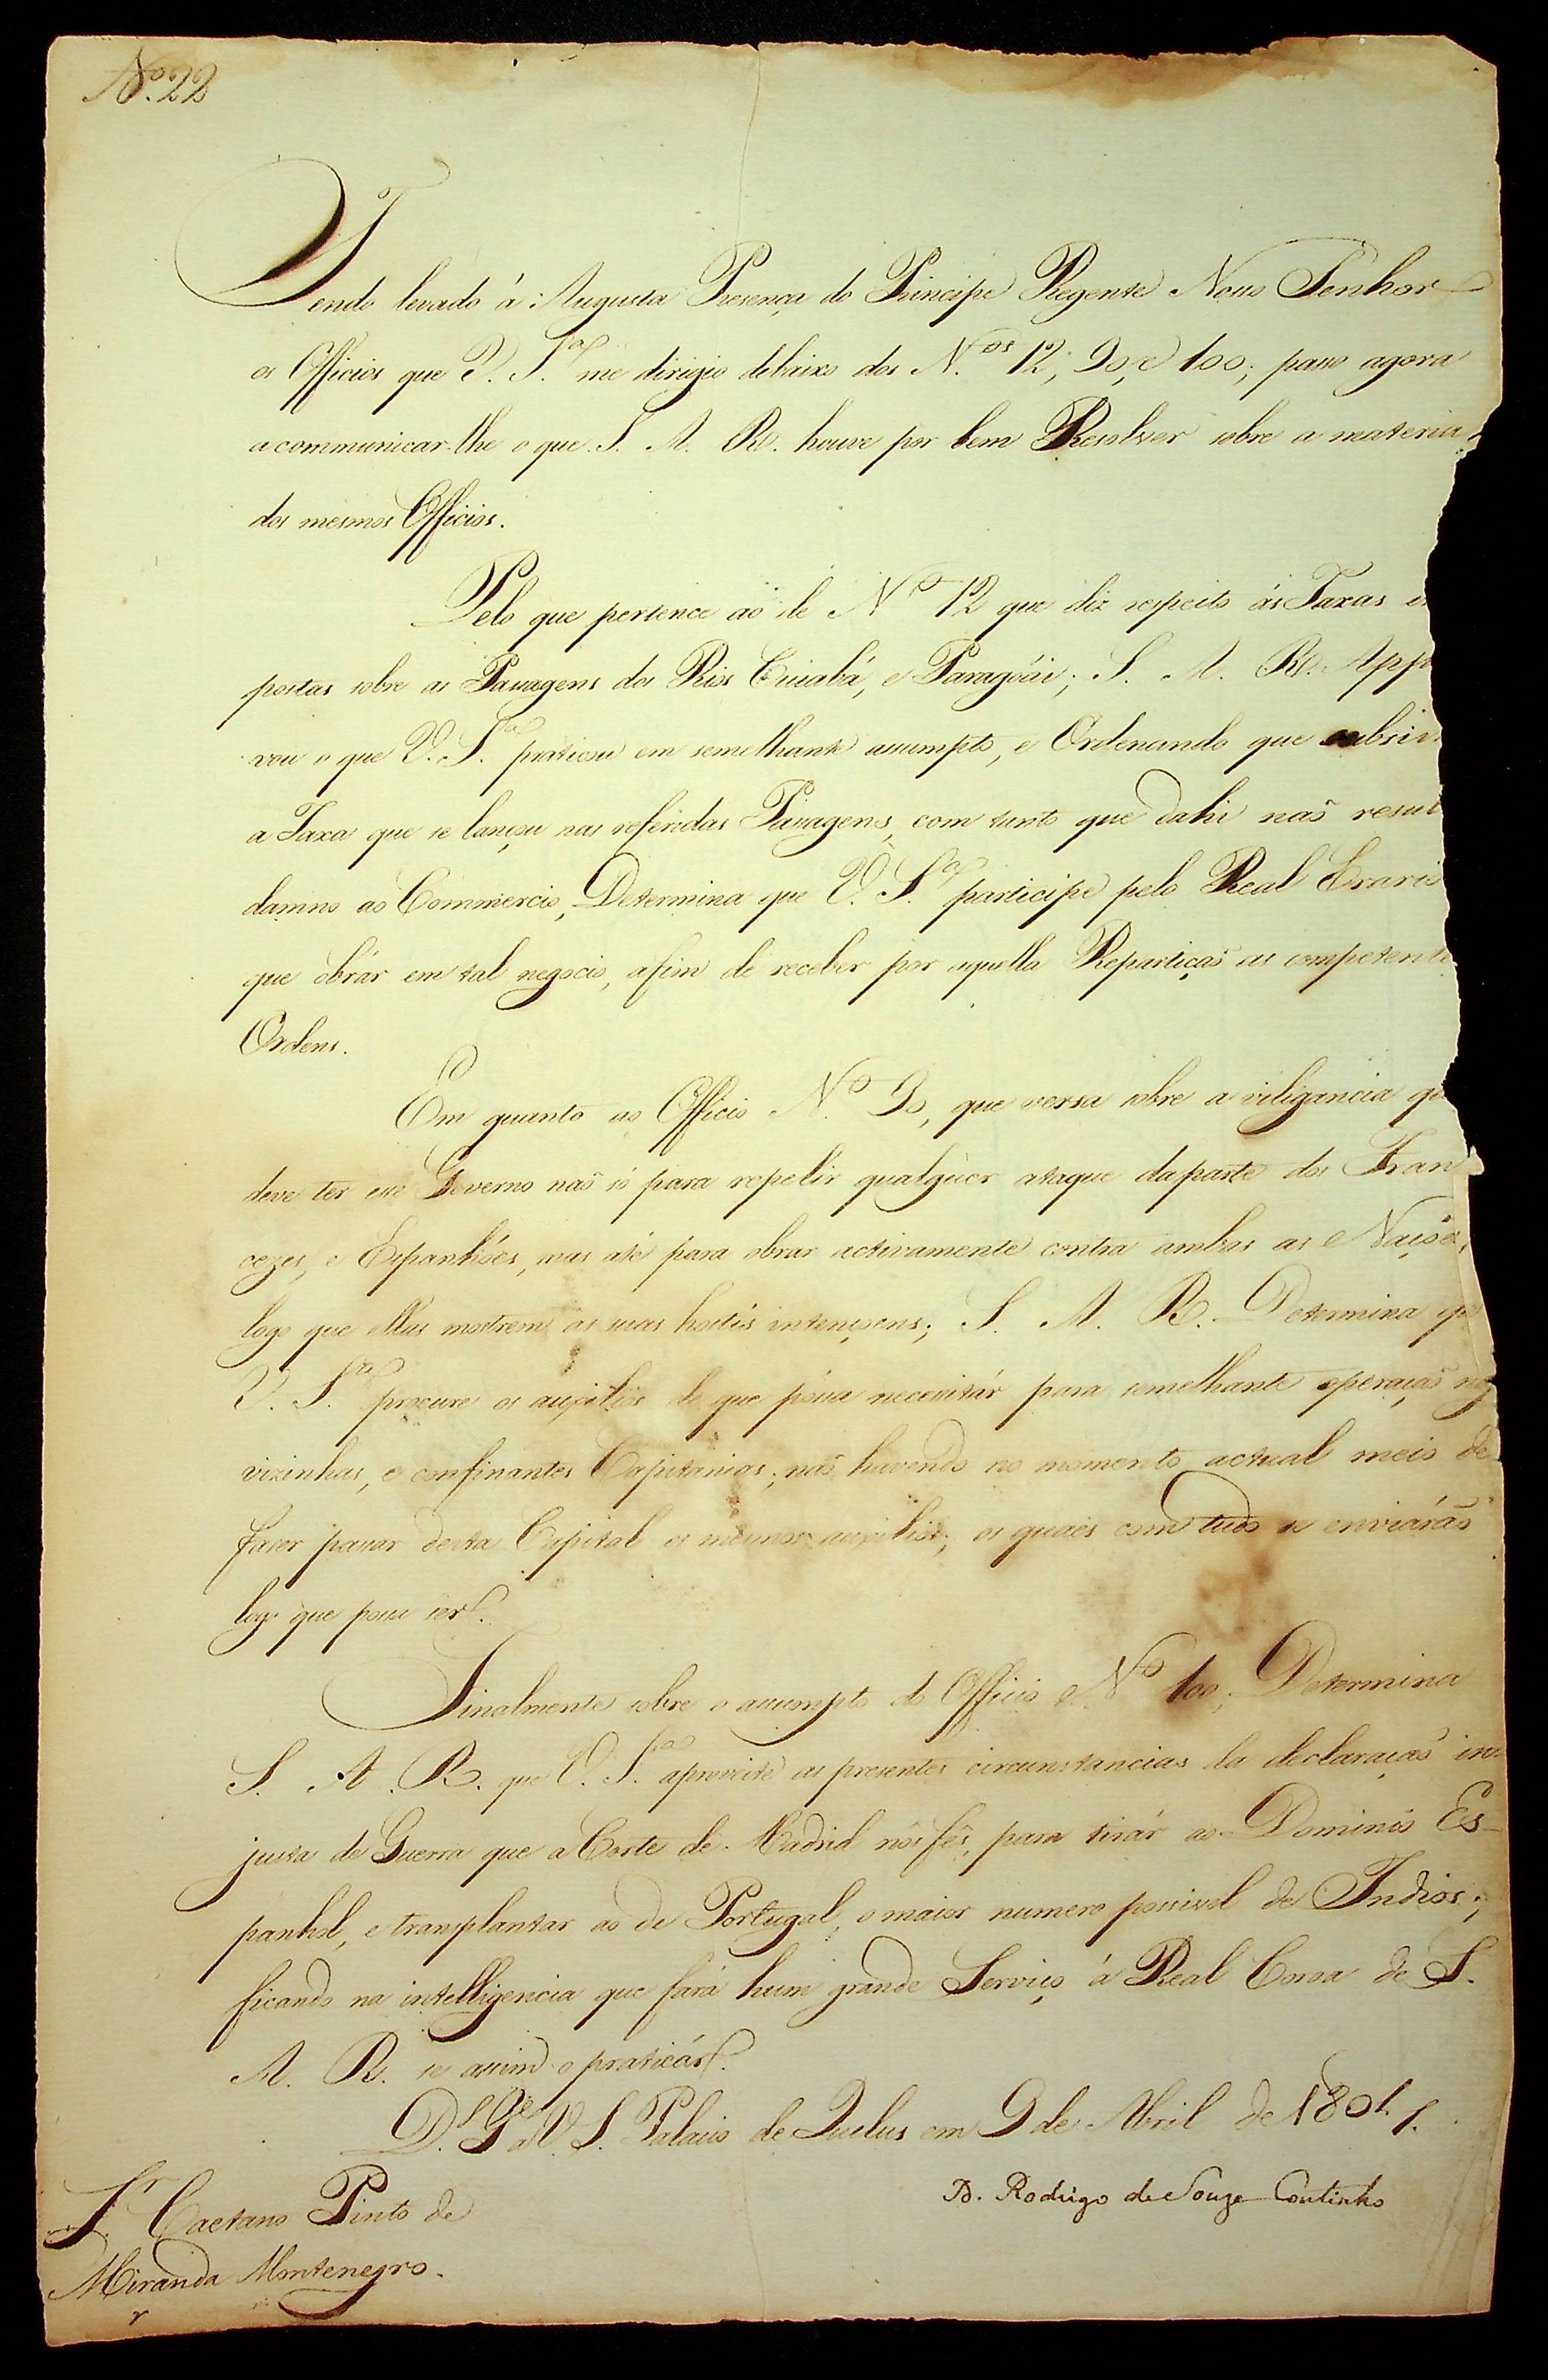 Nº. 22
Tendo levado á Augusta Presença do Principe Regente Nosso Senhor
os Officios que V. S.ª me dirigio debaixo dos N.os 12, 90, e 100; passo agora
a communicar-lhe o que S. A. R. houve por bem Resolver sobre a materia
dos mesmos Officios.
Pelo que pertence ao de Nº 12 que diz respeito ás Taxas
postas sobre as Passagens dos Rios Cuiabá, e Paragoái; S. A. R. App
vou o que V. S.ª praticou em semelhante assumpto, e Ordenando que subsis
a Taxa que se lançou nas referidas Passagens, com tanto que dahi naõ resul
damno ao Commercio, Determina que V. S.ª participe pelo Real Erario
que obrár em tal negocio, afim de receber por aquella Repartiçaõ as competente
Ordens.
Em quanto ao Officio N.º 90, que versa sobre a viligancia que
deve ter esse Governo naõ só para repelir qualquer ataque da parte dos Fran
cezes, e Espanhóes, mas até para obrar activamente contra ambas as Naçoẽs,
logo que ellas mostrem as suas hostís intençoens; S. A. R. Determina que
V. S.ª procure os auxilios de que póssa necessitár para semelhante operaçaõ
vizinhas, e confinantes Capitanias; naõ havendo no momento actual meio de
fazer passar desta Capital os mesmos auxilios; os quaes com tudo se enviaráõ
logo que possa ser.
Finalmente sobre o assumpto do Officio Nº 100; Determina
S. A. R. que V. S.ª aproveite as presentes circunstancias da declaraçaõ in-
justa de Guerra que a Corte de Madrid nos fês, para tirár ao Dominio Es-
panhol, e transplantar ao de Portugal, o maior numero possivel de Indios;
ficando na intelligencia que fará hum grande Serviço á Real Coroa de S.
A. R. se assim o praticár.
D.s G.e a V. S. Palacio de Queluz em 9 de Abril de 1801.
D. Rodrigo de Souza Coutinho
S.r Caetano Pinto de
Miranda Montenegro.